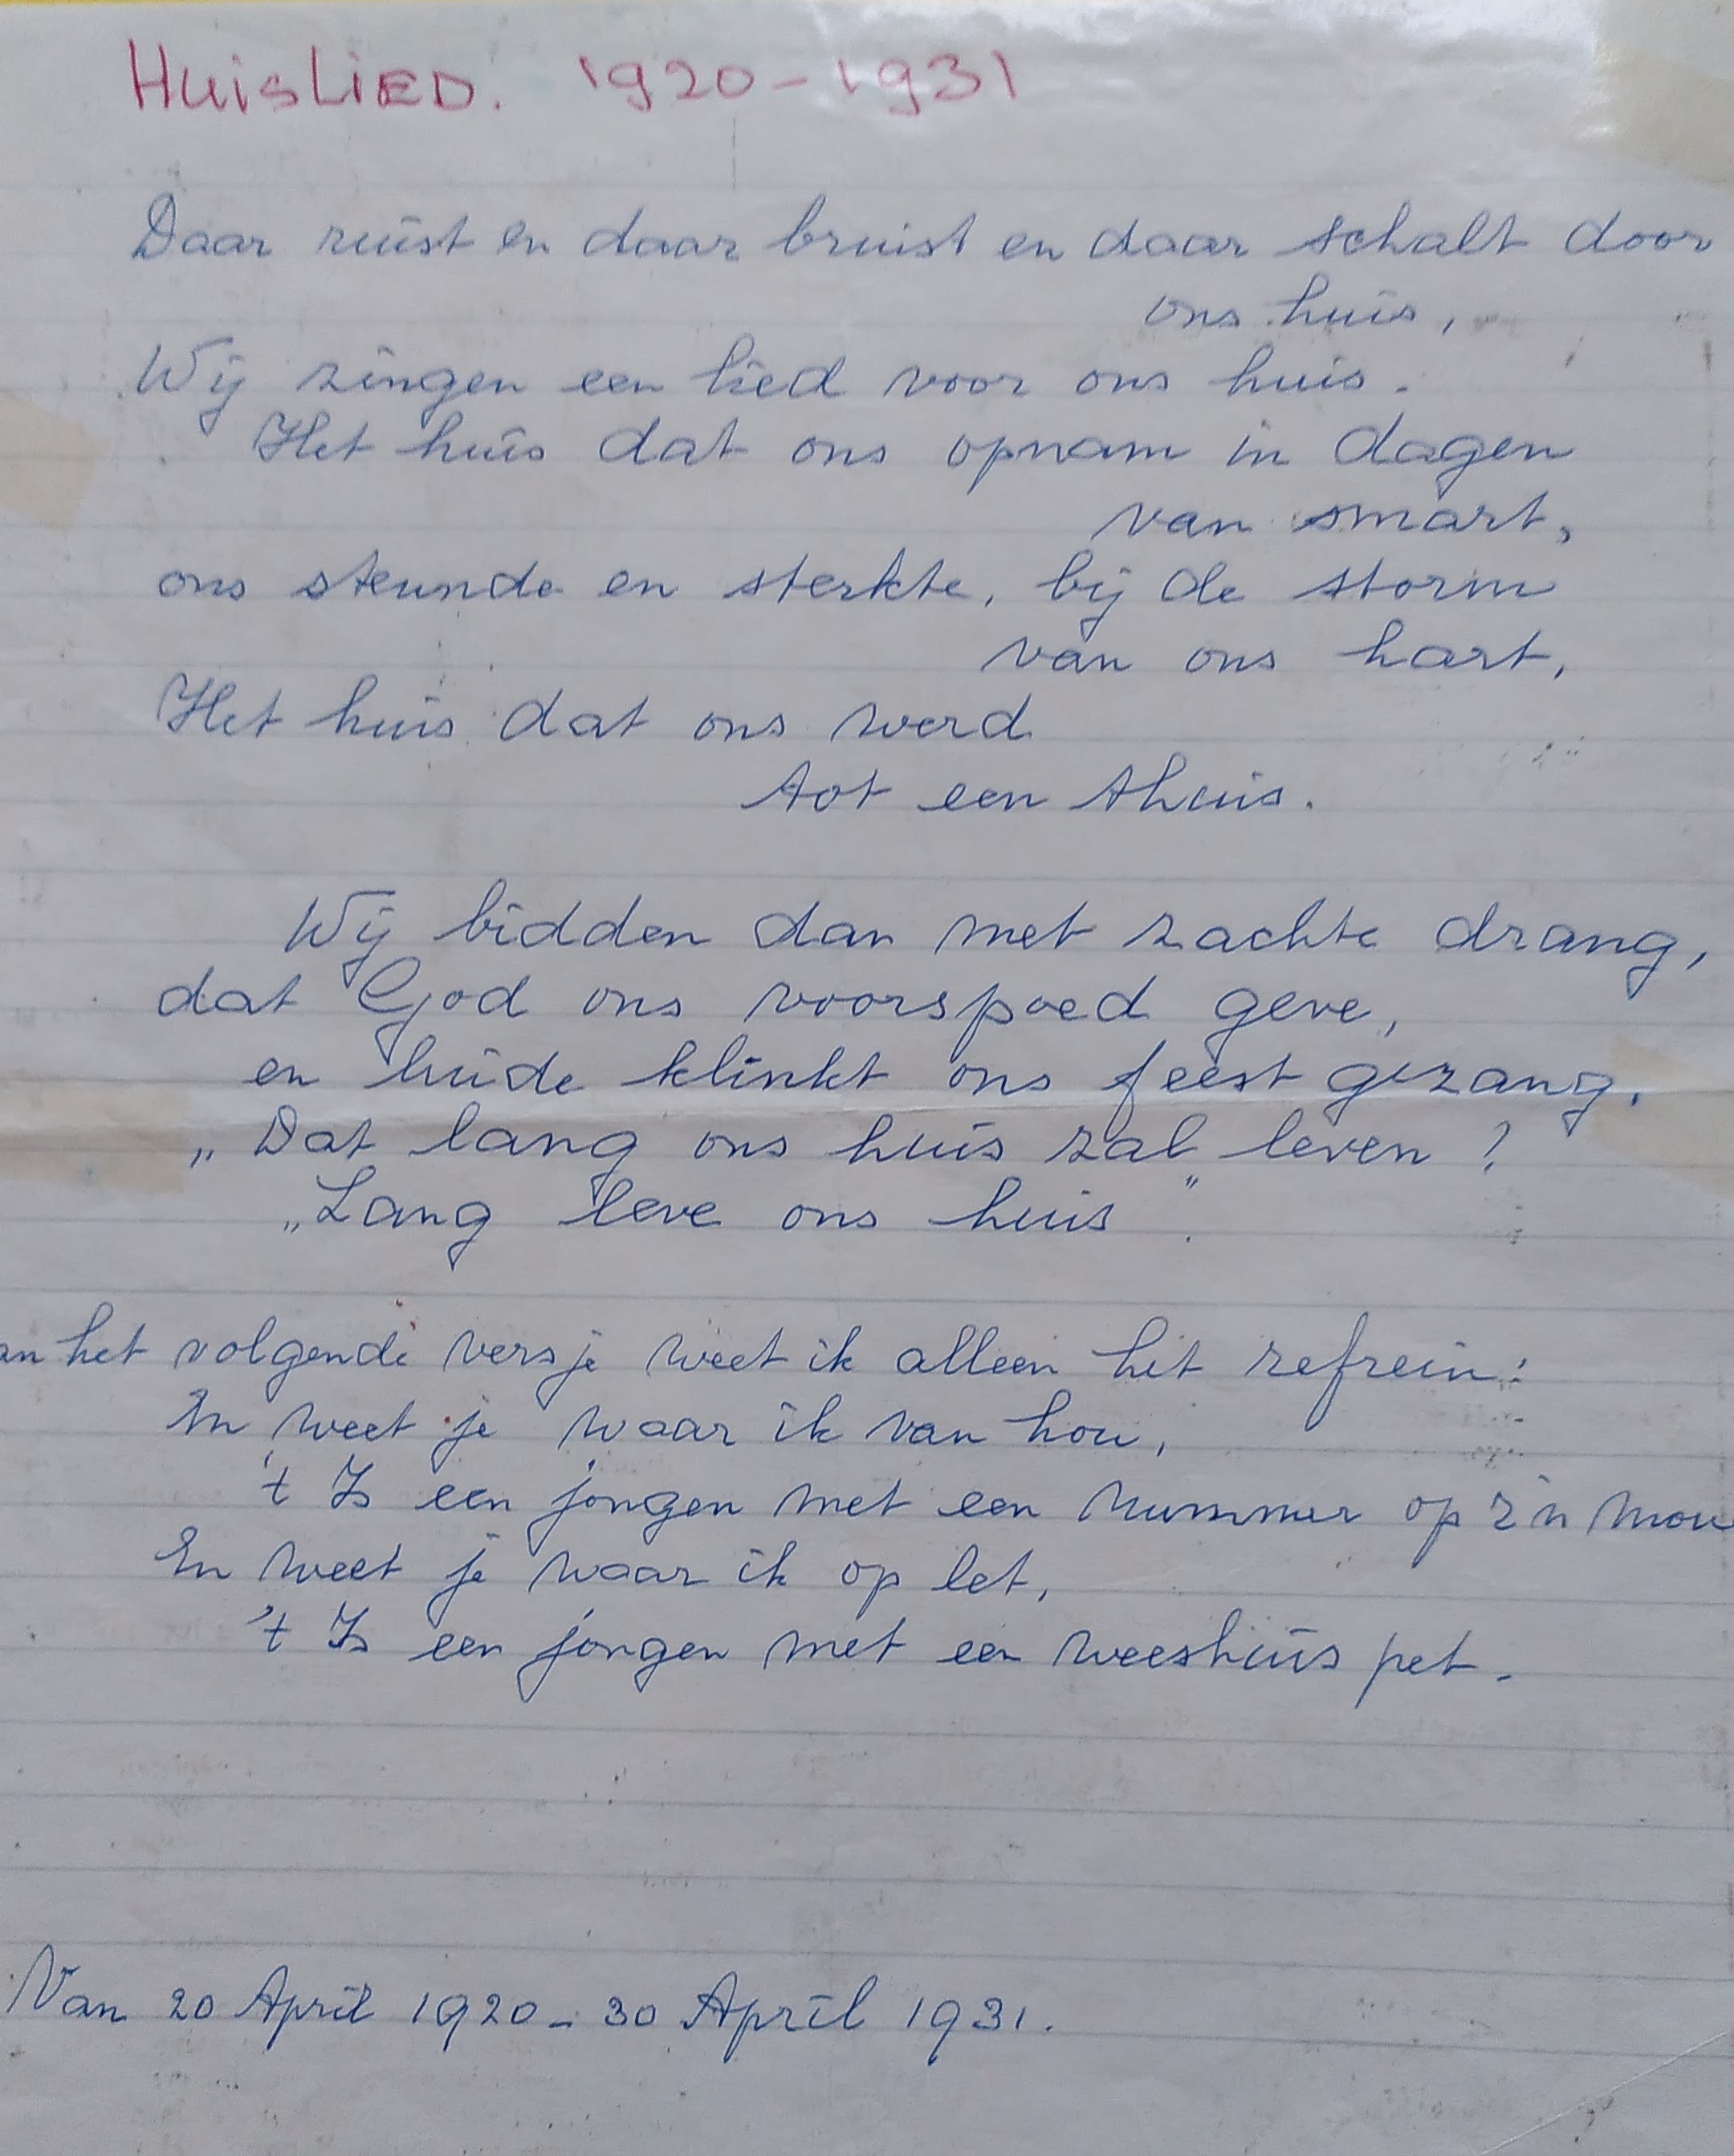 HuisLiED. 1920-1931
Daar ruist en daar bruist en daar schalt door
ons huis,
Wij zingen een lied voor ons huis.
Het huis dat ons opnam in dagen
van smart,
ons steunde en sterkte, bij de storm
van ons hart,
Het huis dat ons werd
tot een thuis.
Wij bidden dan met zachte drang,
dat God ons voorspoed geve,
en luide klinkt ons feest gezang.
„Dat lang ons huis zal leven!
„Lang leve ons huis".
an het volgende versje weet ik alleen het refrein:
En weet je waar ik van hou,
't Is een jongen met een nummer op z'n mou
En weet je waar ik op let,
't Is een jongen met een weeshuis pet.
Van 20 April 1920 - 30 April 1931.